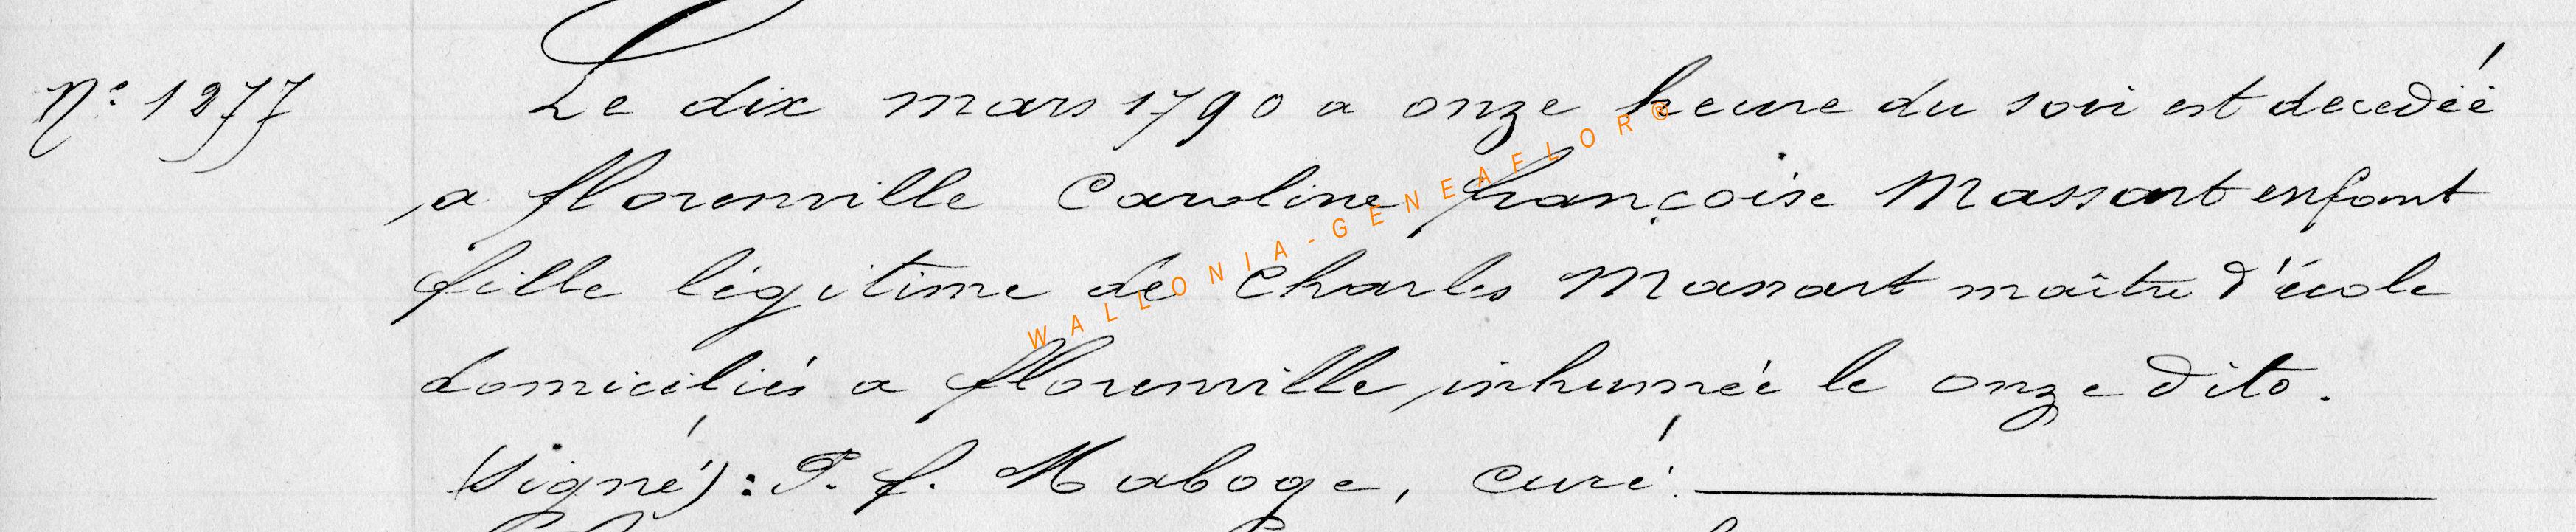 N° 1277 Le dix mars 1790 a onze heure du soir est decedéé
a florenville Caroline françoise Massart enfant
fille légitime de Charles Massart maître d'école
domiciliés a florenville, inhumée le onze dito.
(signé): P. f. Maboge, curé.
WALLONIA-GENEAFLOR©